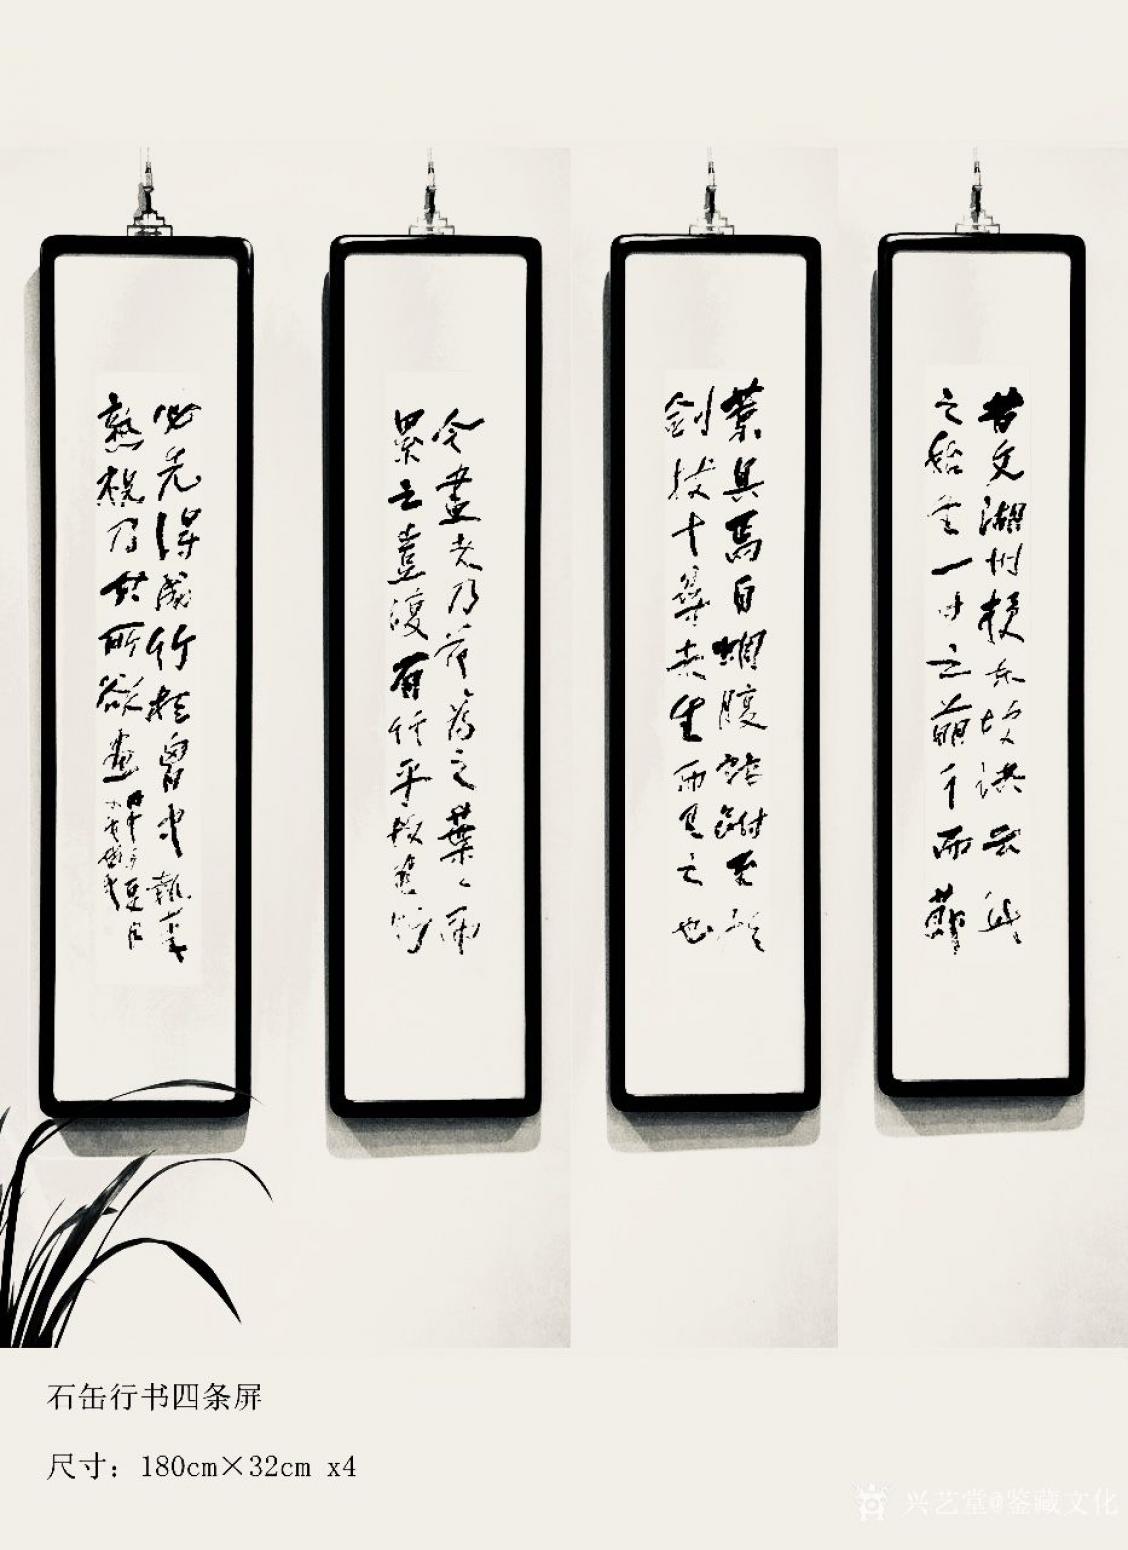 昔文湖州授东坡诀云竹
之始生一寸之萌千而节
葉具焉自蜩腹蛇蚹至於
剑拔十尋者生而有之也
今畫者乃节节为之葉葉而
累之豈復有竹乎故畫竹
必先得成竹於胸中執筆
熟視乃見所欲畫
石缶行书四条屏
尺寸：180cm×32cm x4
兴艺堂@鉴藏文化